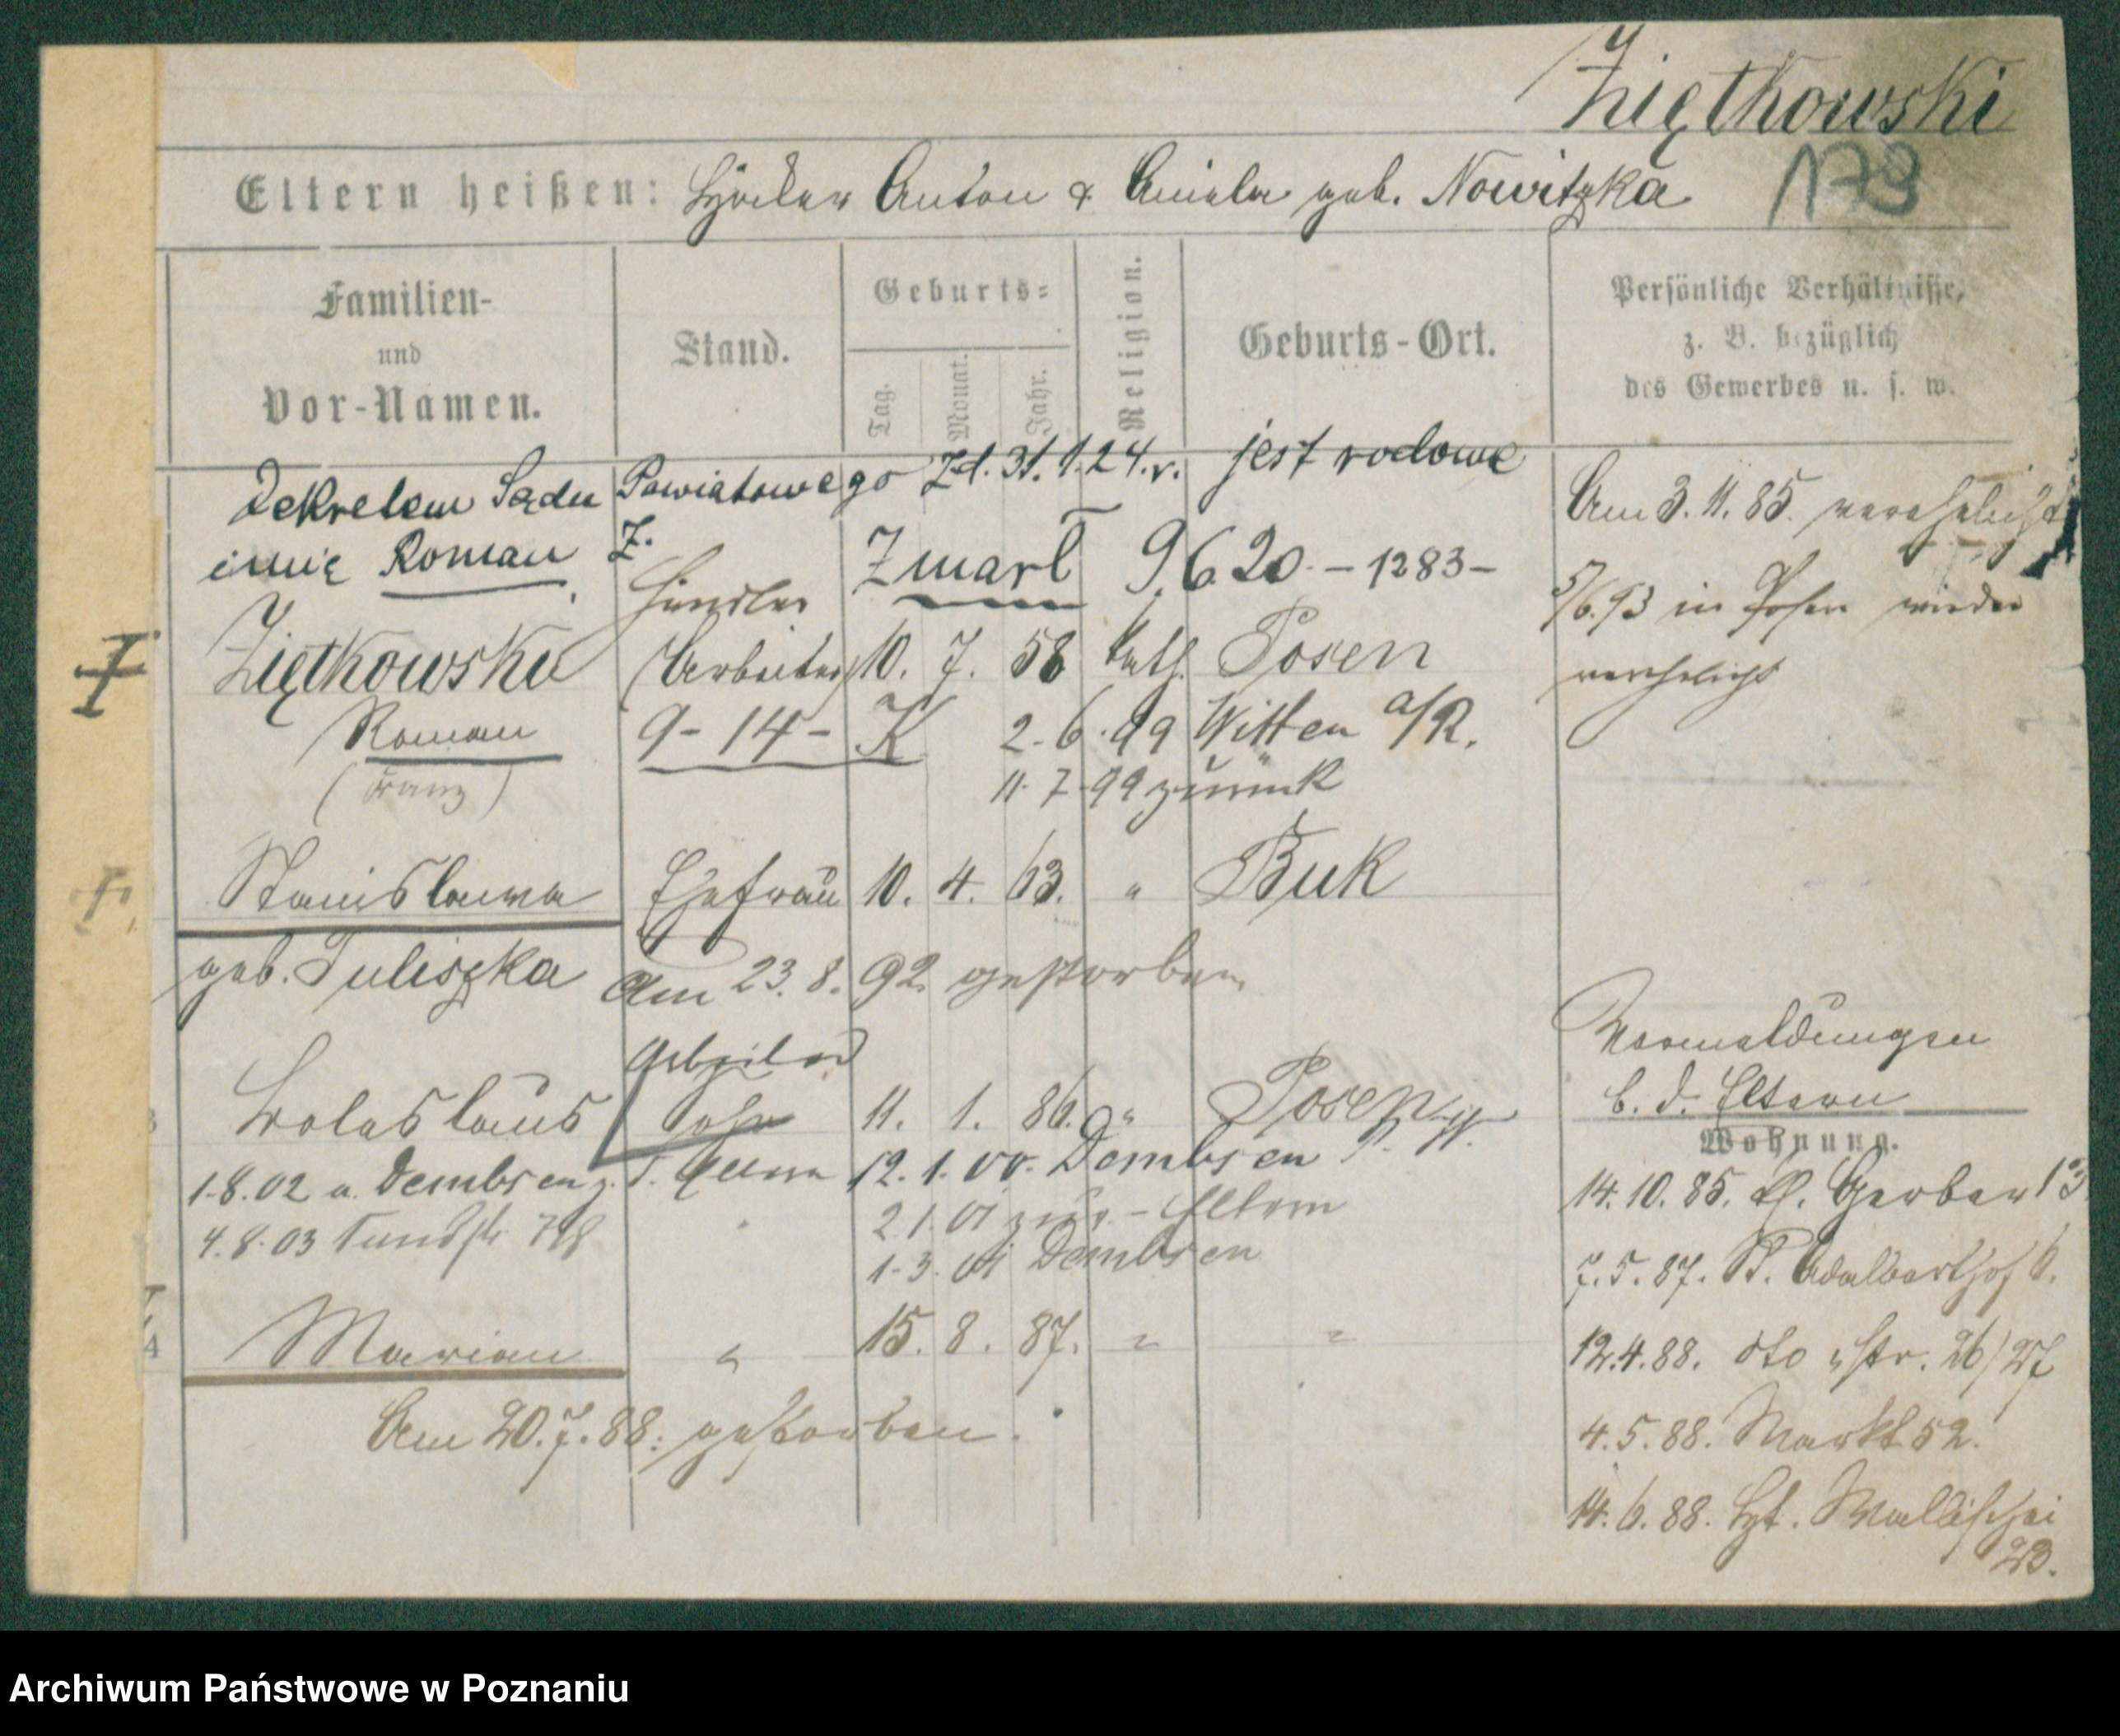 Ziętkowski
179
Eltern heißen: Höcker Anton & Aniela geb. Nowitzka
Familien- und Vor-Namen.
Stand.
Geburts=
Tag.
Monat.
Jahr.
Religion.
Geburts-Ort.
Persönliche Verhältnisse,
z. B. bezüglich
des Gewerbes u. s. w.
Dekretem Sądu Powiatowego z d. 31. 1. 24. r. jest rodowe
imię Roman Z.
Zmarł 9.6.20. – 1283 –
Am 3. 11. 85. verehelicht
5/6. 93 in Posen wieder
verehelicht
Händler
Ziętkowski (Arbeiter) 10. 7. 58 kath. Posen
Roman 9 - 14 - K 2. 6. 99 Witten a/R.
(Franz) 11. 7. 99 zurück
Stanislawa Ehefrau 10. 4. 63. " Buk
geb. Juliszka Am 23. 8. 92 gestorben
Vormeldungen
b. d. Eltern
Boleslaus Sohn 11. 1. 86. " Posen
1.8.02 a. Dembsen z. d. Eltern 12. 1. 00. Dembsen
4. 8. 03 2. 1. 01 zur. Eltern
1. 3. 01 Dembsen
Marian " 15. 8. 87. " "
Am 20. 7. 88. gestorben.
Wohnung.
14. 10. 85. Kl. Gerber 13
7. 5. 87. St. Adalberthof 6.
12. 4. 88. dto str. 26/27
4. 5. 88. Markt 52.
14. 6. 88. Wallischei
23.
Archiwum Państwowe w Poznaniu